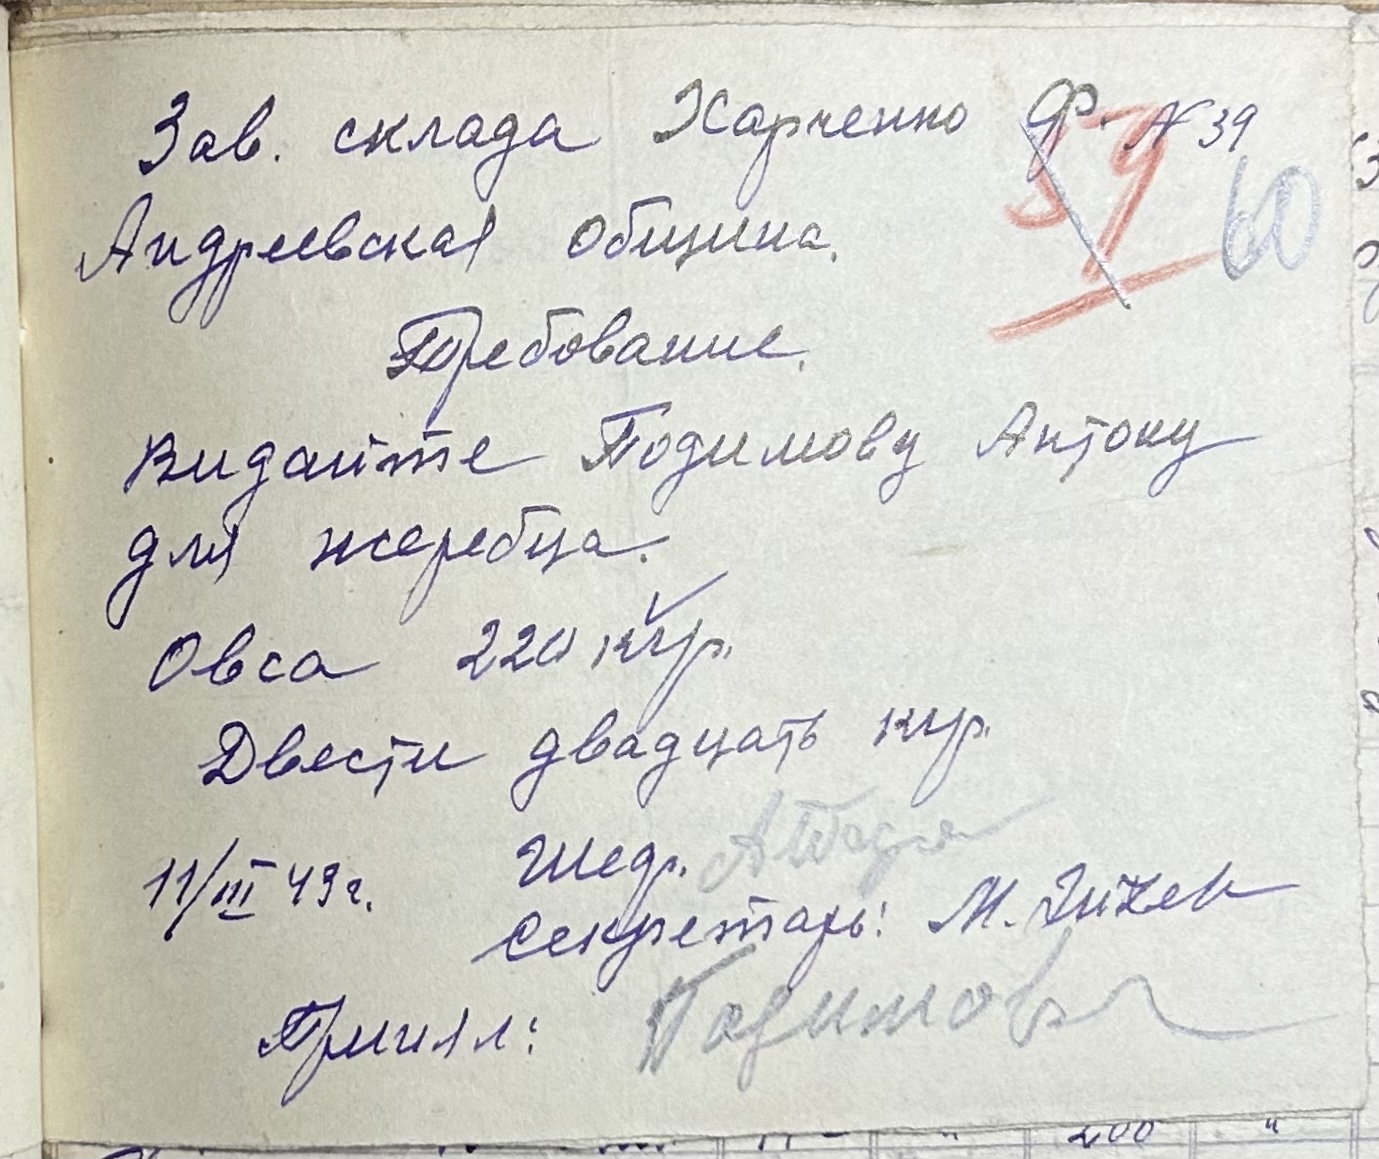 Зав. склада Харченко Ф. N 39
59 60
Андреевская община.
Требование.
Видайте Подимову Антону
для жеребца.
Овса 220 кгр.
Двести двадцать кгр.
11/III 43 г. Шедр.
секретарь: М.
Принял: Подимов